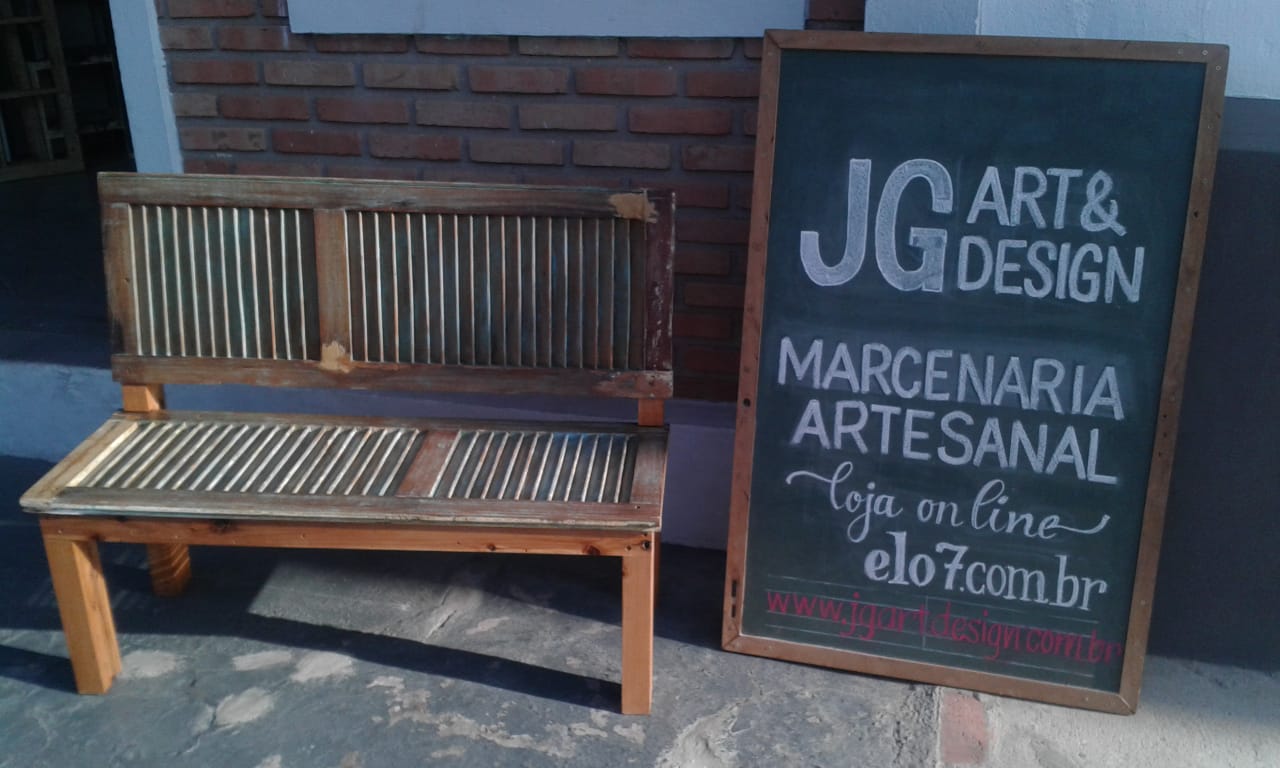 JG ART &
DESIGN
MARCENARIA
ARTESANAL
loja on line
elo7.com.br
www.jgartdesign.com.br